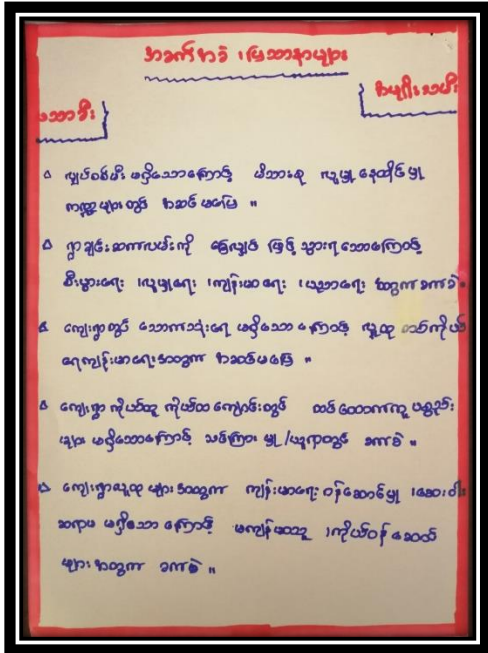 အခက်အခဲ ၊ပြဿနာများ
အမျိုးသမီး
ပထာဒီး
လျှပ်စစ်မီး မရှိသောကြောင့် မိသားစု လူမှု နေထိုင်မှု
ကဏ္ဍများတွင် အဆင်မပြေ ။
ရွာချင်းဆက်လမ်းကို ခြေလျှင် ဖြင့် သွားရသောကြောင့်
စီးပွားရေး ၊လူမှုရေး ၊ကျန်းမာရေး ၊ပညာရေး အတွက်ခက်ခဲ။
ကျေးရွာတွင် သောက်သုံးရေ မရှိသောကြောင့် လူထု တစ်ကိုယ်
ရေကျန်းမာရေးအတွက် အဆင်မပြေ ။
ကျေးရွာ ကိုယ်ထူ ကိုယ်ထ ကျောင်းတွင် ထောက်ကူ ပစ္စည်း
များ မရှိသောကြောင့် သင်ကြား မှု /ယူရာတွင် ခက်ခဲ ။
ကျေးရွာလူထု များအတွက် ကျန်းမာရေး ဝန်ဆောင်မှု ၊ဆေးဝါး
ဆရာမ မရှိသောကြောင့် မကျန်းမာသူ ၊ကိုယ်ဝန်ဆောင်
များအတွက် ခက်ခဲ ။